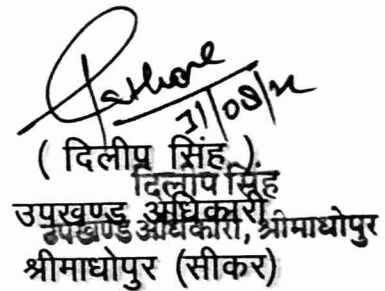 Rathore
31/08/21
( दिलीप सिंह )
दिलीप सिंह
उपखण्ड अधिकारी
उपखण्ड अधिकारी, श्रीमाधोपुर
श्रीमाधोपुर (सीकर)